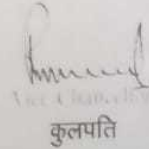 Vice-Chancellor
कुलपति